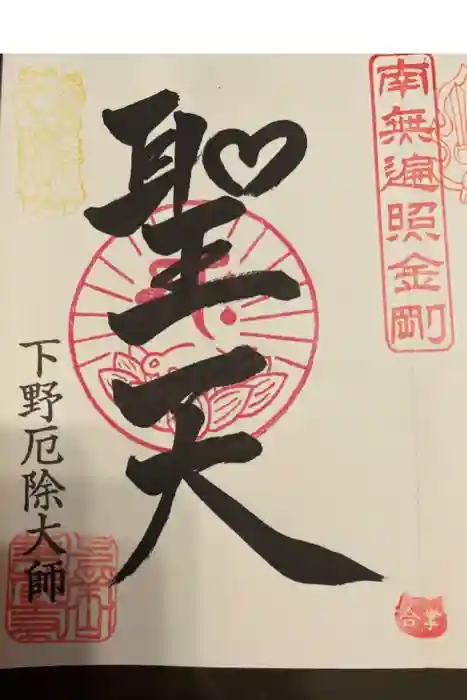 南無遍照金剛
聖天
下野厄除大師
合掌